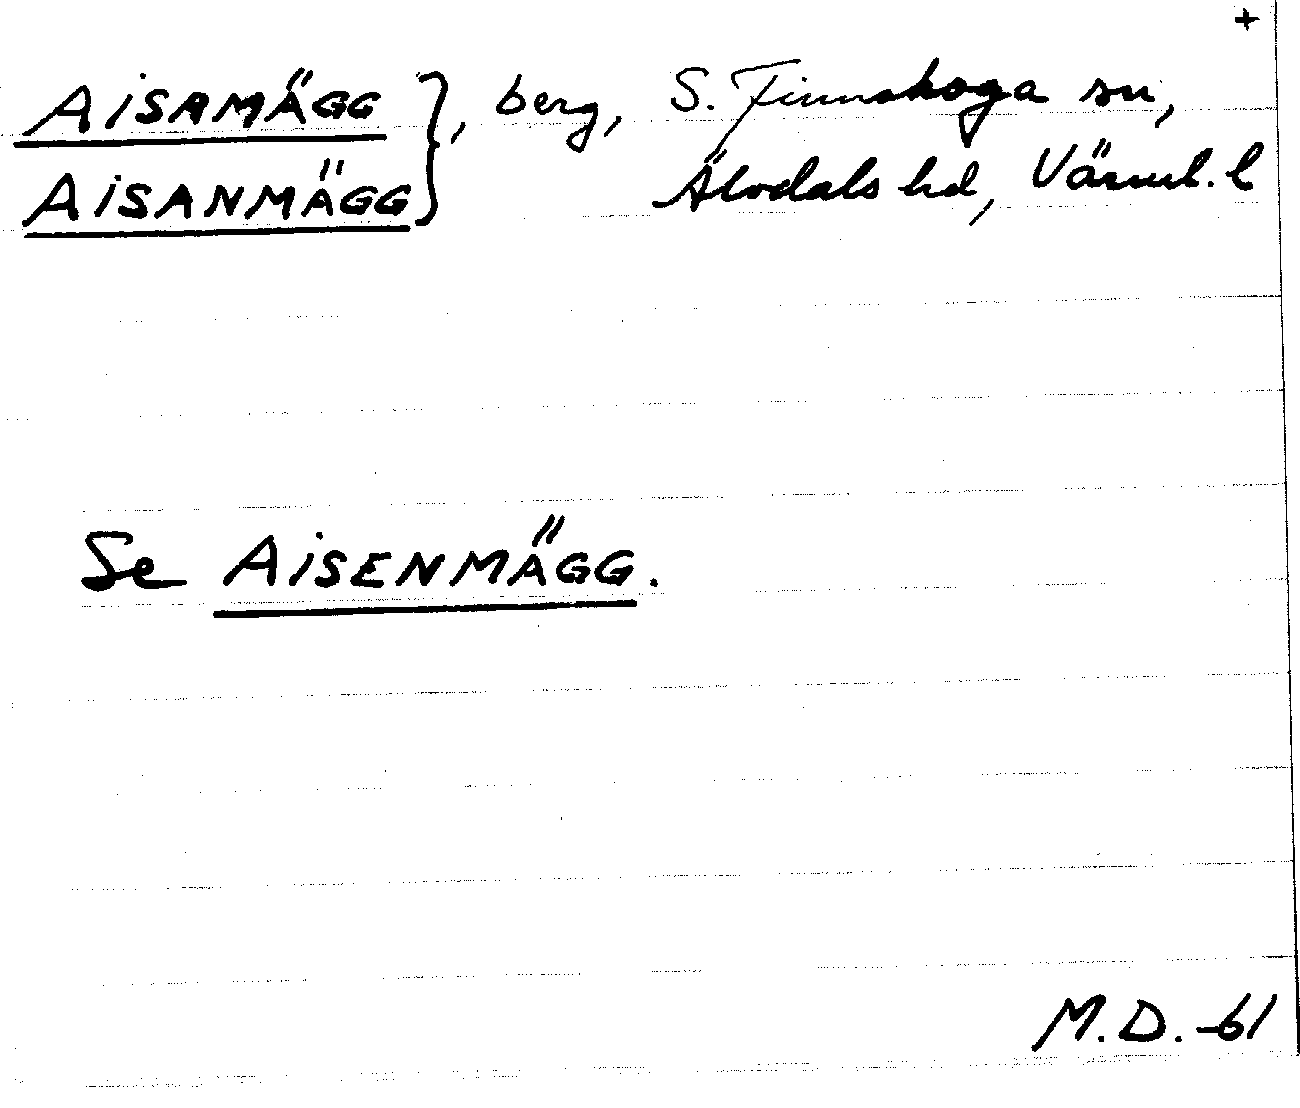 +
AISAMÄGG }, berg, S. Finnskoga sn,
AISANMÄGG } Älvdals hd, Värml. l
Se AISENMÄGG.
M.D. -61